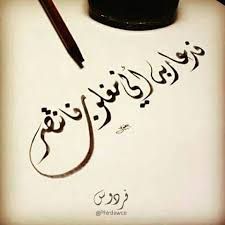 فدعا ربه أني مغلوب فانتصر
فردوس
@Pferdawce